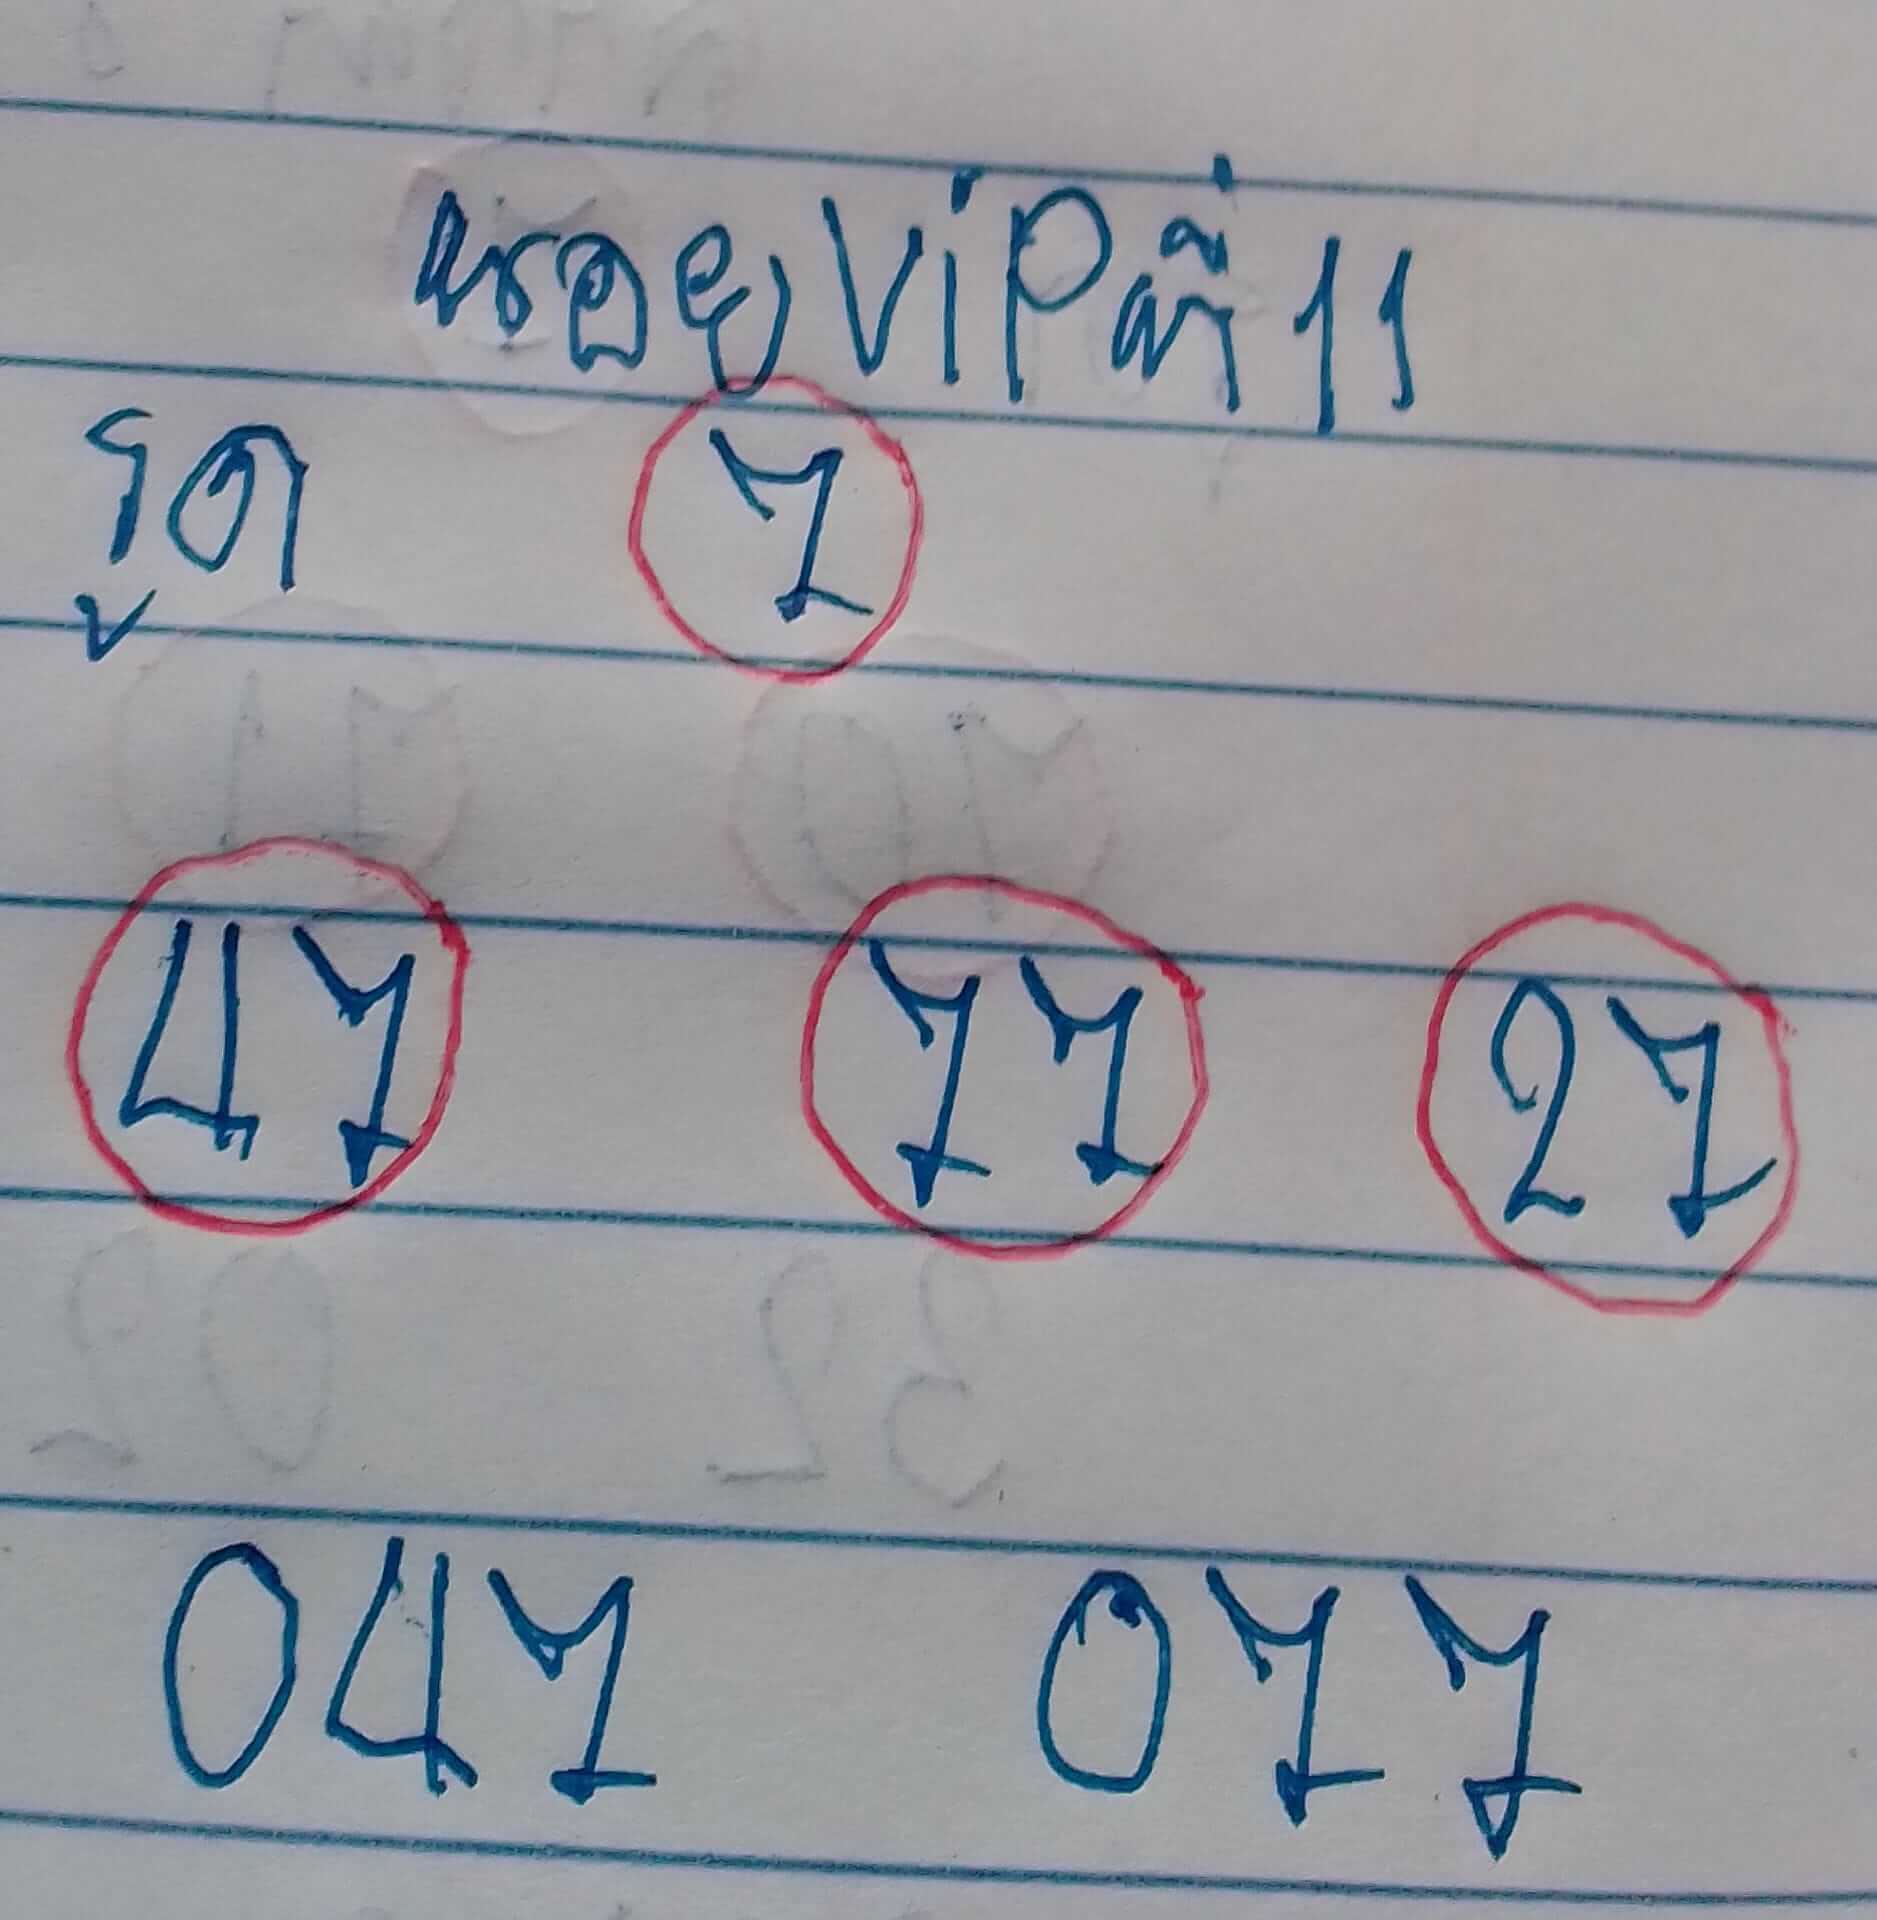 ViP ที่ 11
รูด 7
47 77 27
047 077